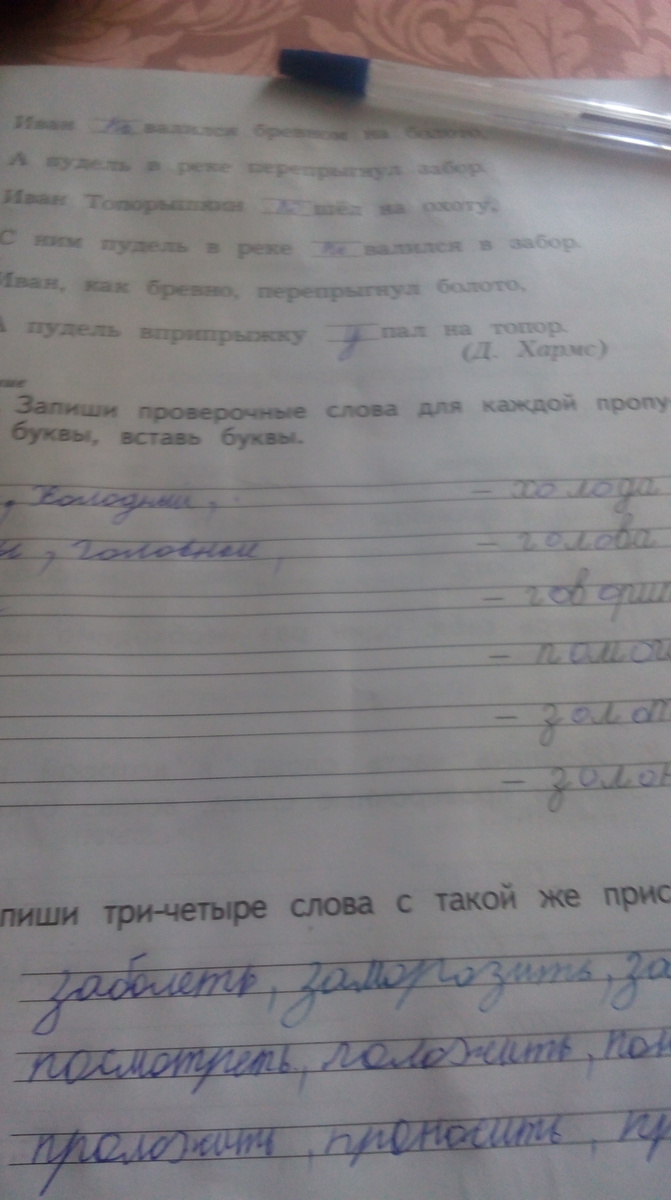 Иван по валился бревном на болото,
А пудель в реке перепрыгнул забор.
Иван Топорышкин по шёл на охоту,
С ним пудель в реке валился в забор.
Иван, как бревно, перепрыгнул болото,
А пудель вприпрыжку у пал на топор.
(Д. Хармс)
Запиши проверочные слова для каждой пропу-
буквы, вставь буквы.
, холодный, - холода
, головной, - голова
- говори
- помо
- золот
- золо
пиши три-четыре слова с такой же прис
заболеть, заморозить, за
посмотреть, положить, пом
проложить, проносить, пр